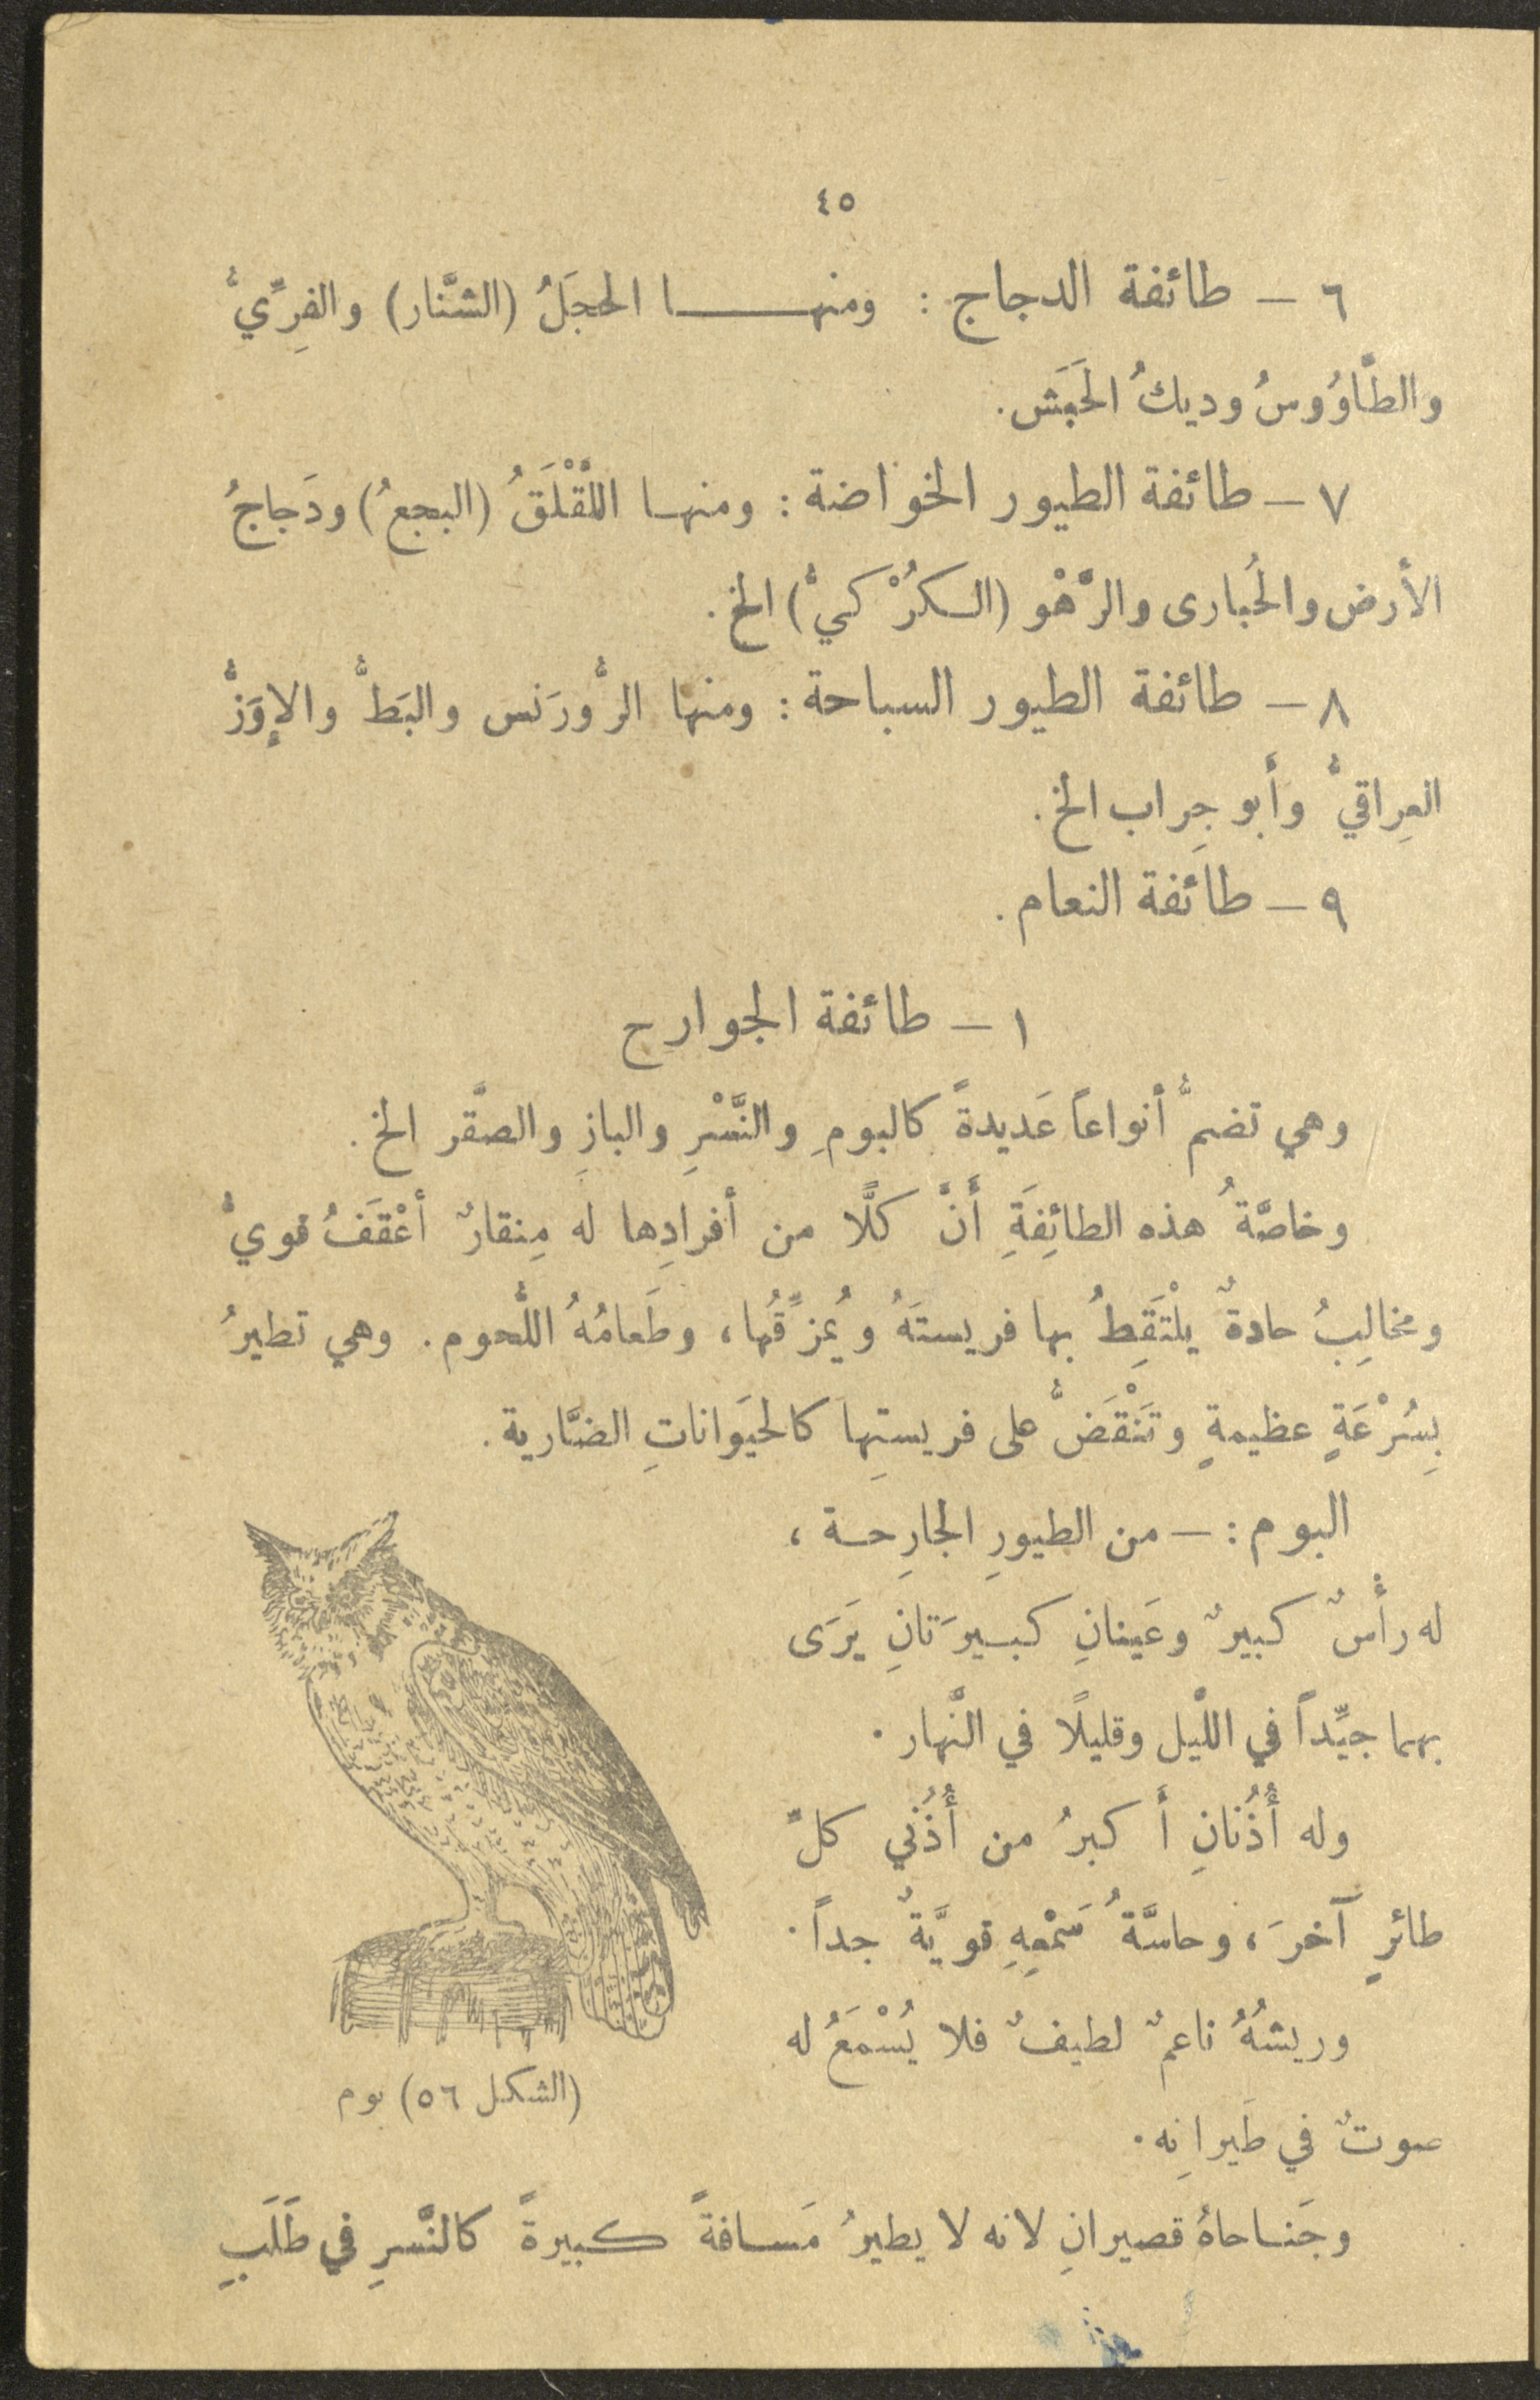 ٤٥
٦ — طائفة الدجاج : ومنهـــا الحجَلُ (الشنَّار) والفِرِّيُّ
والطَّاوُوسُ وديكُ الحَبَش.
٧ — طائفة الطيور الخواضة : ومنهـا اللَّقْلَقُ (البجعُ) ودَجاجُ
الأرض والحُبارى والرَّهْو (الكُرْكيُّ) الخ.
٨ — طائفة الطيور السباحة : ومنها الزُّورَنس والبَطُّ والإوَزُّ
العِراقيُّ وأبو جِراب الخ.
٩ — طائفة النعام.
١ — طائفة الجوارح
وهي تضمُّ أنواعاً عَديدةً كالبومِ والنَّسْرِ والبازِ والصَّقر الخ.
وخاصَّةُ هذه الطائِفَةِ أَنَّ كلًّا من أفرادِها له مِنقارٌ أعْقَفُ قويٌّ
ومخالِبُ حادةٌ يلْتَقِطُ بها فريستَهُ ويُمزِّقُها، وطَعامُهُ اللُّحوم. وهي تطيرُ
بِسُرْعَةٍ عظيمةٍ وتَنْقَضُّ على فريستِها كالحيَواناتِ الضَّارية.
البوم : — من الطيورِ الجارِحـة ،
له رأْسٌ كبيرٌ وعَينانِ كبـيرَتانِ يَرَى
بهما جيِّداً في اللَّيل وقليلًا في النَّهار.
وله أُذُنانِ أكبرُ من أُذُني كلِّ
طائرٍ آخرَ ، وحاسَّةُ سَمْعِهِ قويَّةٌ جداً.
وريشهُ ناعمٌ لطيفٌ فلا يُسْمَعُ له
صوتٌ في طَيرانِه.
(الشكل ٥٦) بوم
وجَنـاحاهُ قصيرانِ لانه لا يطيرُ مَسـافةً كبيرةً كالنَّسرِ في طَلَبِ